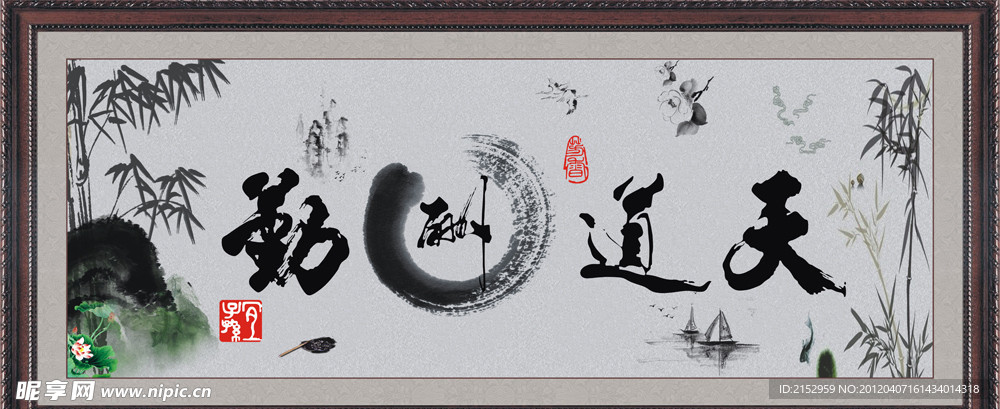 天道酬勤
宜子孫
昵享网 www.nipic.cn
ID:2152959 NO:20120407161434014318